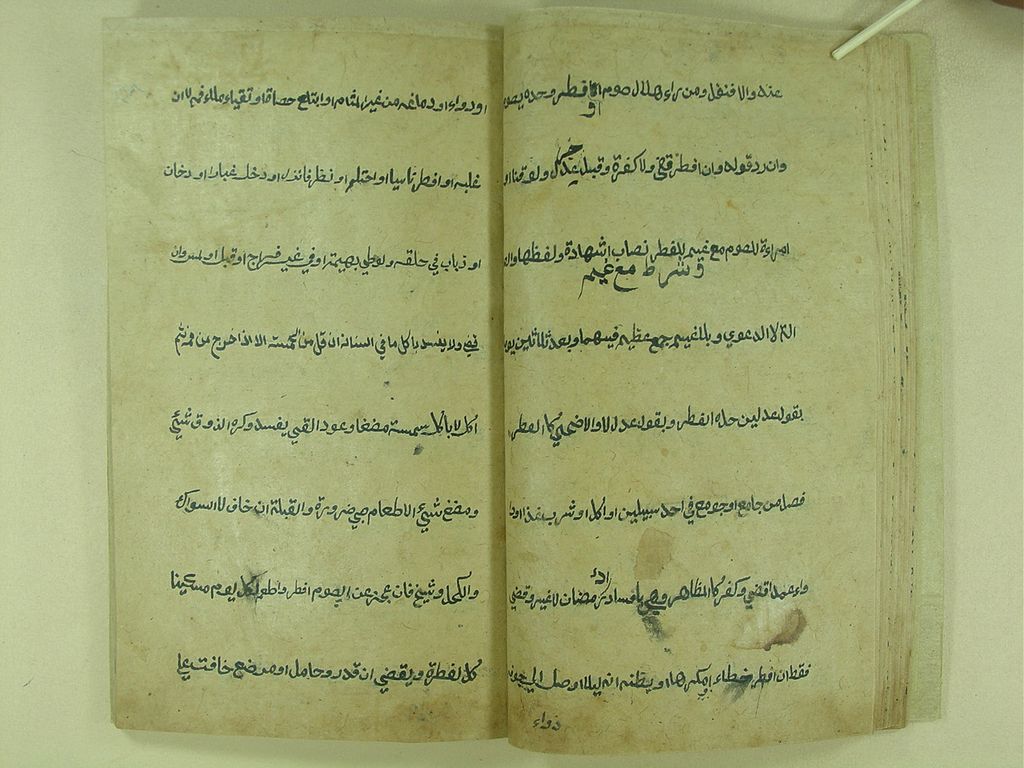 عنده والا فنفل ومن راء هلال صوم او فطر وحده يصو
وان رد قوله وان افطر قضي ولا كفرة وقبل عدل ولو قنا او
امراءة للصوم مع غيم للفطر نصاب الشهادة ولفظها وان
وشرط مع غيم
لا الدعوي وبلا غيم جمع عظيم فيهما وبعد ثلاثين يوما
بقول عدلين حله الفطر وبقول عدل لا والاضحي كالفطر
فصل من جامع او جومع في احد سبيلين او اكل او شرب غذا او
عمدا قضي وكفر كالمظاهر وهي بافساد اداء رمضان لا غير وقضي
فقط ان افطر خطاء او مكرها او يظنه انه ليلا او وصل الي جوفه
دواء
او دواء او دماغه من غير المسام او ابتلع حصاة او تقياء ملاء فمه لا ان
غلبه او افطر ناسيا او احتلم او نظر فانزل او دخل غبار او دخان
او ذباب في حلقه ولو طي بهيمة او في غير فرج او قبل او لمس وان
قضي ولا يفسد باكل ما في اسنانه ان قل من الحمصة الا اذا اخرج من فمه ثم
اكل لا باكل سمسمة مضغا وعود القيئ يفسد وكره الذوق شيئ
ومضغ شيئ الا طعام صبي ضرورة والقبلة ان خاف لا السواك
والكحل وشيخ فان عجز عن الصوم افطر واطعم لكل يوم مسكينا
كالفطرة ويقضي ان قدر وحامل او مرضع خافت علي